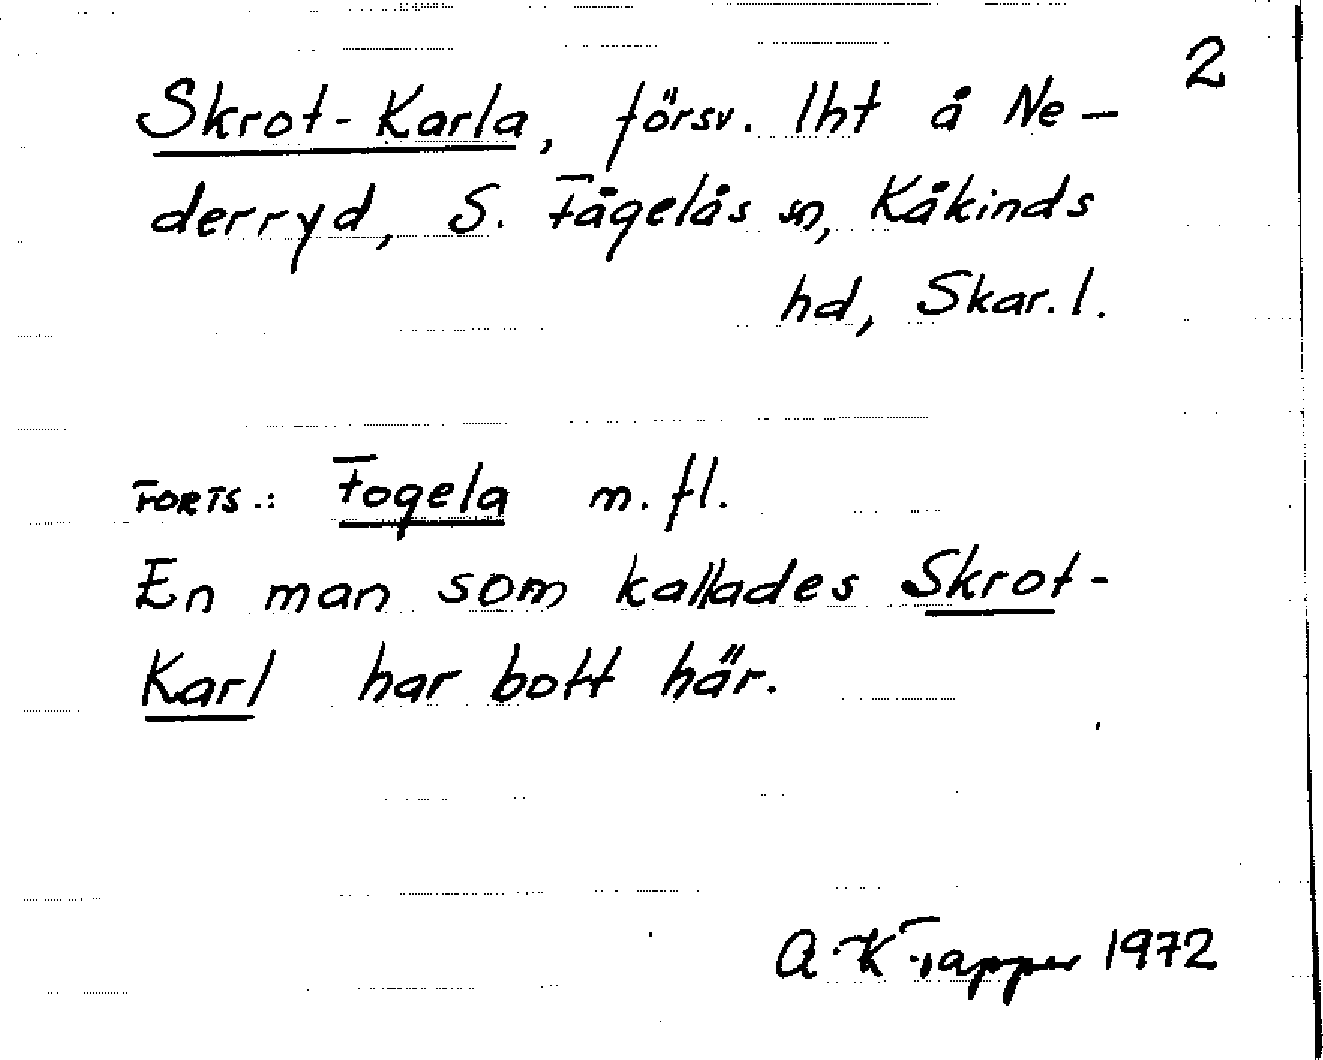 2
Skrot-Karla, försv. lht å Ne-
derryd, S. Fågelås sn, Kåkinds
hd, Skar. l.
FORTS.: Fogela m. fl.
En man som kallades Skrot-
Karl har bott här.
A-K Tapper 1972